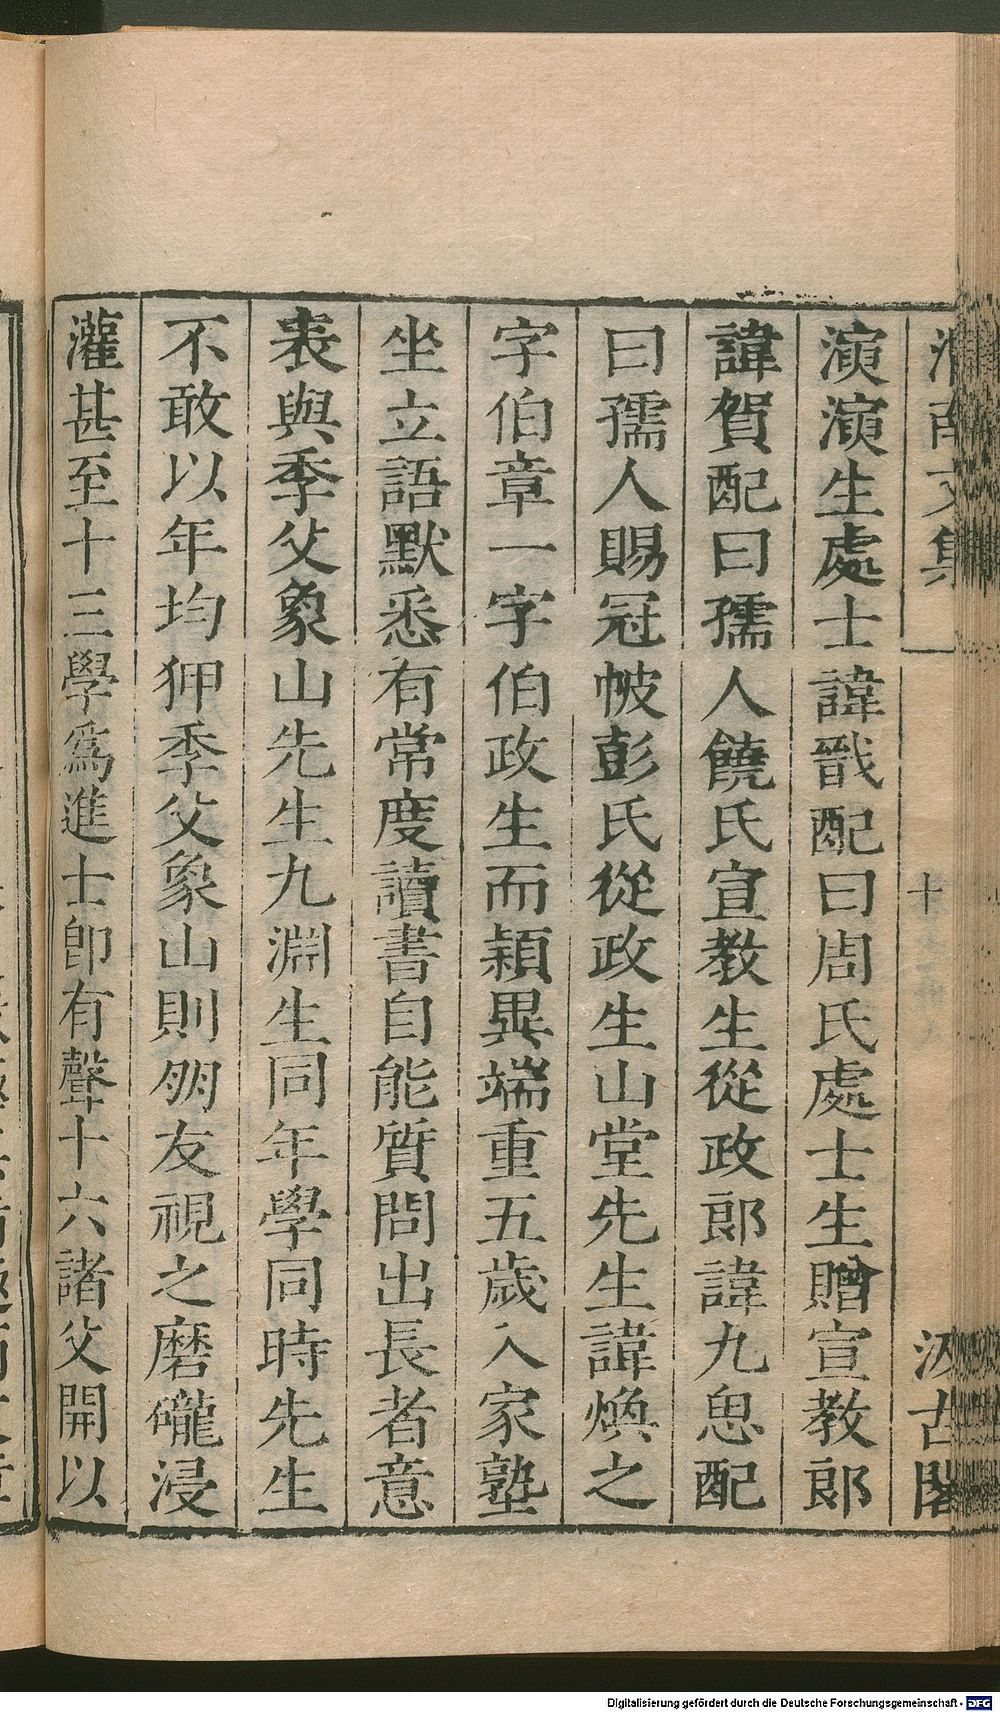 渭南文集 十 汲古閣
演演生處士諱戩配曰周氏處士生贈宣教郎
諱賀配曰孺人饒氏宣教生從政郎諱九思配
曰孺人賜冠帔彭氏從政生山堂先生諱煥之
字伯章一字伯政生而穎異端重五歲入家塾
坐立語默悉有常度讀書自能質問出長者意
表與季父象山先生九淵生同年學同時先生
不敢以年均狎季父象山則朋友視之磨礲浸
灌甚至十三學爲進士卽有聲十六諸父開以
Digitalisierung gefördert durch die Deutsche Forschungsgemeinschaft - DFG